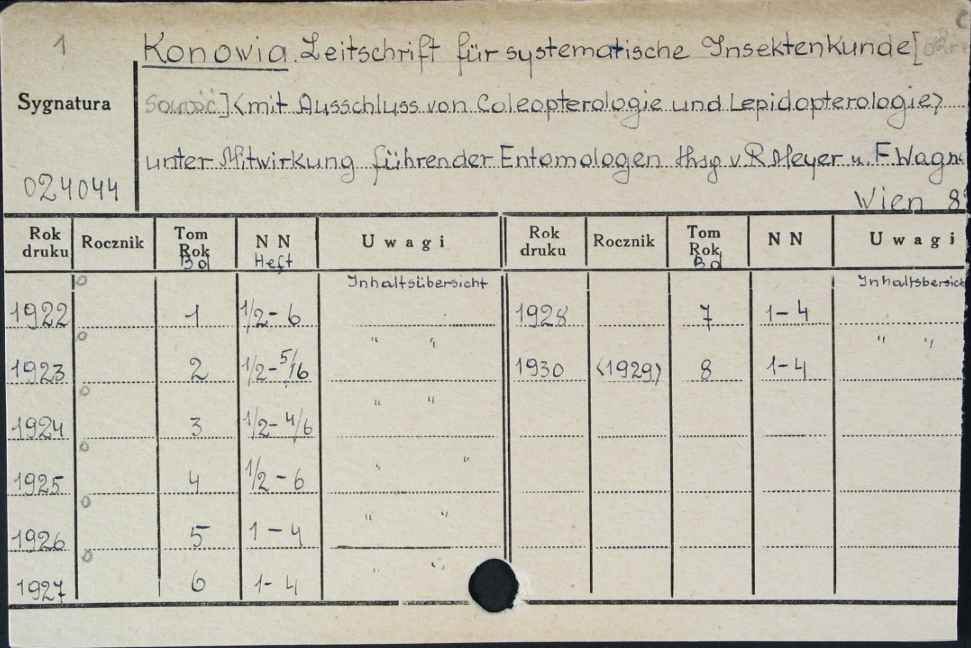 1
Konowia. Zeitschrift für systematische Insektenkunde[
Sygnatura
] <mit Ausschluss von Coleopterologie und Lepidopterologie>
unter Mitwirkung führender Entomologen Hrsg. v. R. Meyer u. F. Wagn
024044
Wien 8°
Rok druku Rocznik Tom Rok Bd NN Heft Uwagi Rok druku Rocznik Tom Rok Bd NN Uwagi
Inhaltsübersicht Inhaltsbersich
1922 1 1/2-6 1928 7 1-4
" " " "
1923 2 1/2-5/6 1930 <1929> 8 1-4
" "
1924 3 1/2-4/6
" "
1925 4 1/2-6
" "
1926 5 1-4
" "
1927 6 1-4